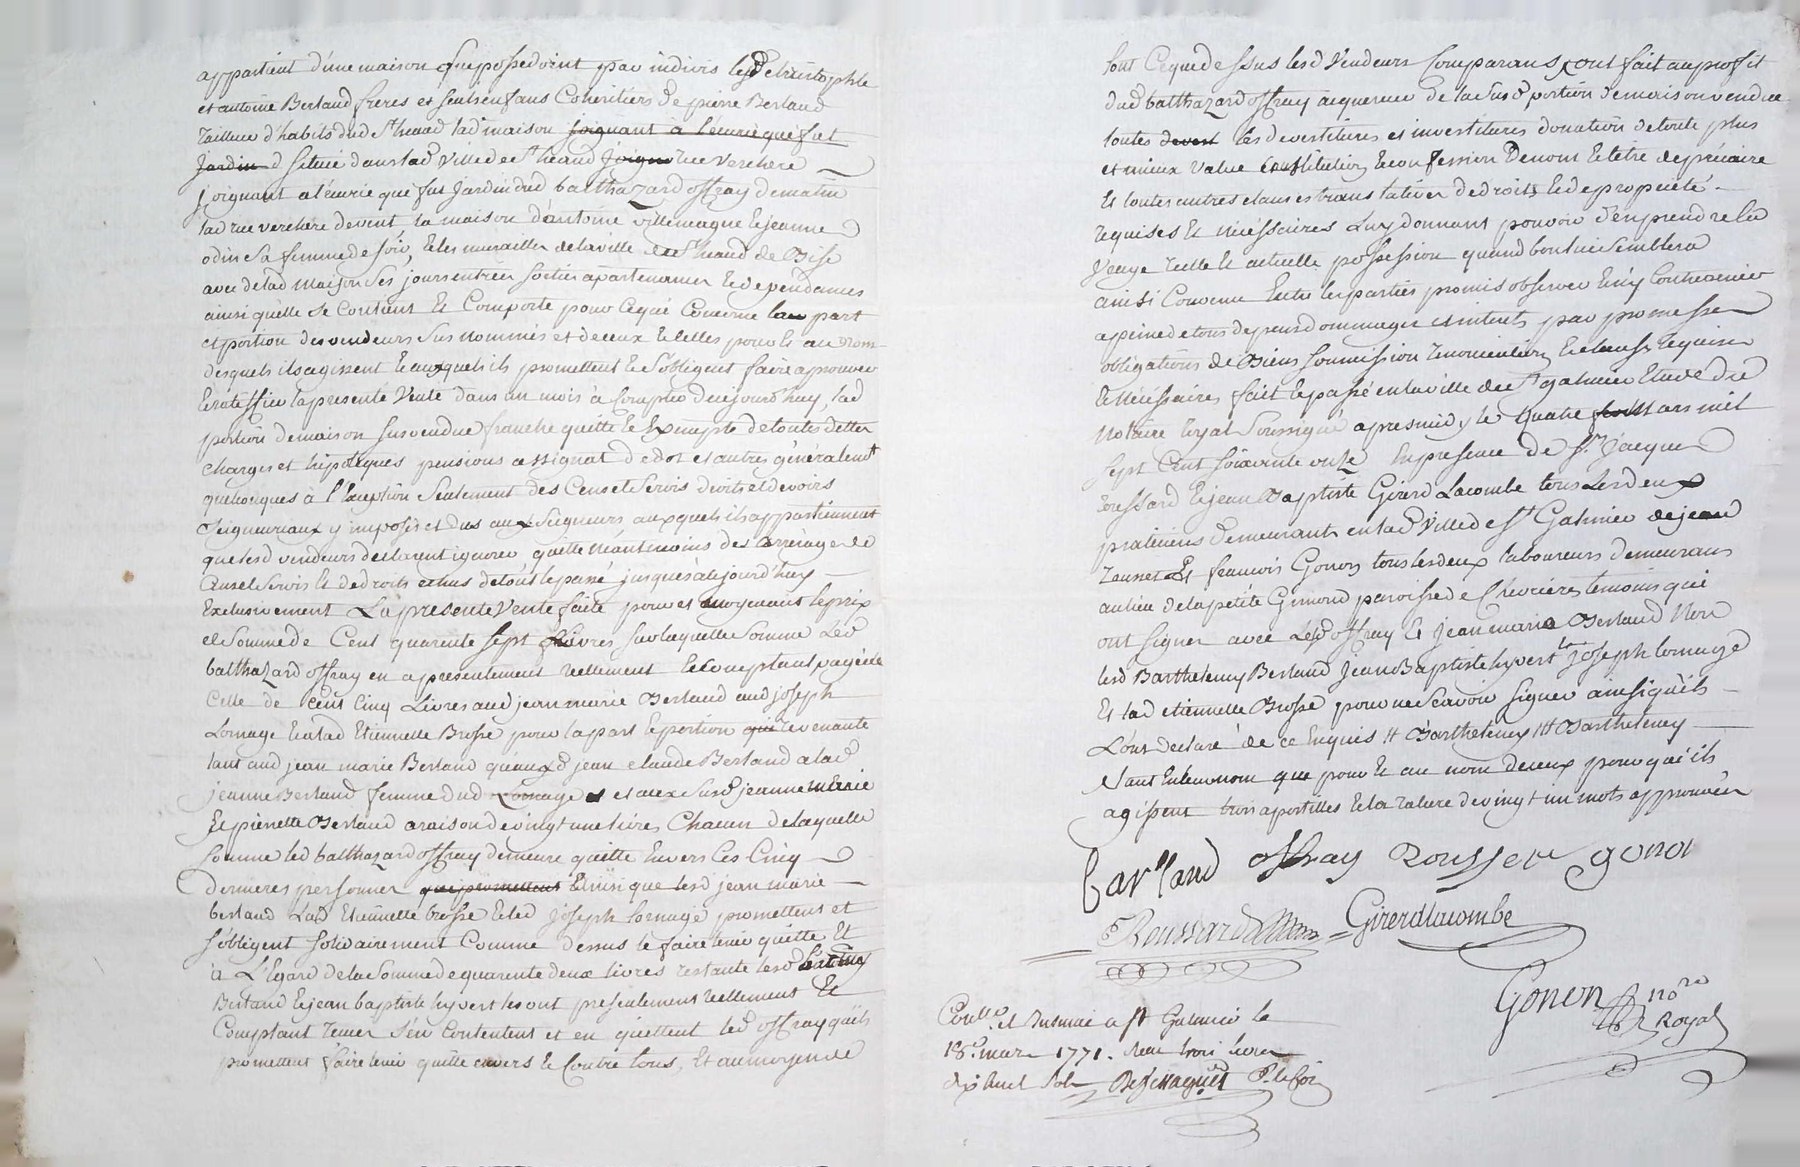 appartient d'une maison que possedoint par indivis lesd christophle
et antoine Berland freres et seuls enfans Coheritiers de pierre Berland
Tailleur d'habits dud St heand lad maison joignant a l'écurie que fut
Jardin d située dans lad ville de St heand joigna rue verchere
joignant a l'écurie que fut Jardin dud balthazard offray de matin
lad rue verchere devent, la maison d'antoine villemagne et jeanne
odin sa femme de soir, et les murailles de la ville de St heand de Bise
avec de lad Maison ses jours entrées sorties apartenances et dependances
ainsi qu'elle se Contient et Comporte pour ce qui Concerne la part
et portion des vendeurs sus nommés et de ceux et celles pour et au nom
desquels ils agissent et auxquels ils promettent et s'obligent faire aprouver
et ratiffier la presente Vente dans un mois à Compter de cejourd'huy, lad
portion de maison sus vendue franche quitte et Exempte de toutes dettes
charges et hipoteques pensions assignat de dot et autres généralemt
quelconques à l'Exception seulement des Cens et Servis droits et devoirs
Seigneuriaux y imposés et dus aux Seigneurs auxquels ils appartiennent
que lesd vendeurs declarent ignorer quitte néantmoins des arrerages de
Cens et Servis et de droits echus de tout le passé jusques à cejourd'huy
Exclusivement La presente Vente faite pour et moyenant le prix
et Somme de Cent quarente sept Livres sur laquelle Somme led
balthazard offray en a presentement réellement et Comptant payé
celle de Cent Cinq Livres aud jean marie Berland aud joseph
Lornage et a lad Etiennelle Brosse pour la part et portion qui revenante
tant aud jean marie Berland qu'auxd jean claude Berland a lad
jeanne Berland femme dud Lornage et aux susd jeanne marie
Et pierrette Berland a raison de vingt une livres Chacun de laquelle
somme led balthazard offray demeure quitte Envers Ces Cinq
dernieres personnes que promettent Et ainsi que lesd jean marie
berland Lad Etiennelle brosse et led joseph Lornage promettent et
s'obligent solidairement Comme dessus le faire tenir quitte Et
à L'Egard de la Somme de quarente deux livres restante lesd
Berland et jean baptiste hyvert les ont presentement réellement Et
Comptant recue s'en Contentent et en quittent led offray qu'ils
promettent faire tenir quitte envers et Contre tous, Et au moyen de
tout Ceque dessus lesd Vendeurs Comparans ont fait au profit
dud balthazard offray acquereur de la susd portion de maison vendue
toutes devest les devestitures et investitures donation de toute plus
et mieux Value Constitution et confession De nom et titre de précaire
Et toutes autres clauses translatives de droits et de propriété
requises et nécéssaires Luy donnant pouvoir d'en prendre la
Vraye réelle et actuelle possession quand bon lui Semblera
ainsi Convenu Entre les parties promis observer et n'y Contrevenir
a peine de tous depens dommages et interets par promesses
obligations de Biens soumission renonciation et clauses requises
et nécéssaires fait et passé en la ville de St galmier Etude du
Notaire Royal Soussigné apres midy le quatre mars mil
sept Cent soixante onze En presence de Sr Jacques
Roussard et jean Baptiste Girerd Lacombe tous les deux
praticiens demeurants en lad ville de St Galmier de jean
rousset Et francois Gonon tous les deux laboureurs demeurans
au lieu de la petite Gimond paroisse de Chevrieres temoins qui
ont signer avec lesd offray et jean marie Berland Non
lesd Barthelemy Berland Jean Baptiste hyvert le joseph Lornage
Et lad etiennelle Brosse pour ne Scavoir signer ainsi qu'ils
L'ont declaré de ce Enquis # Barthelemy ## Barthelemy
tant En leur nom que pour et au nom de ceux pour qui ils
agissent trois apostilles et la rature de vingt un mots approuvées
barland offray Rousset gonon
Roussard Girerdlacombe
Gonon nore
Royal
Conllé et Insinué a St Galmier le
18e mars 1771. Reçu trois livres
dix huit sols